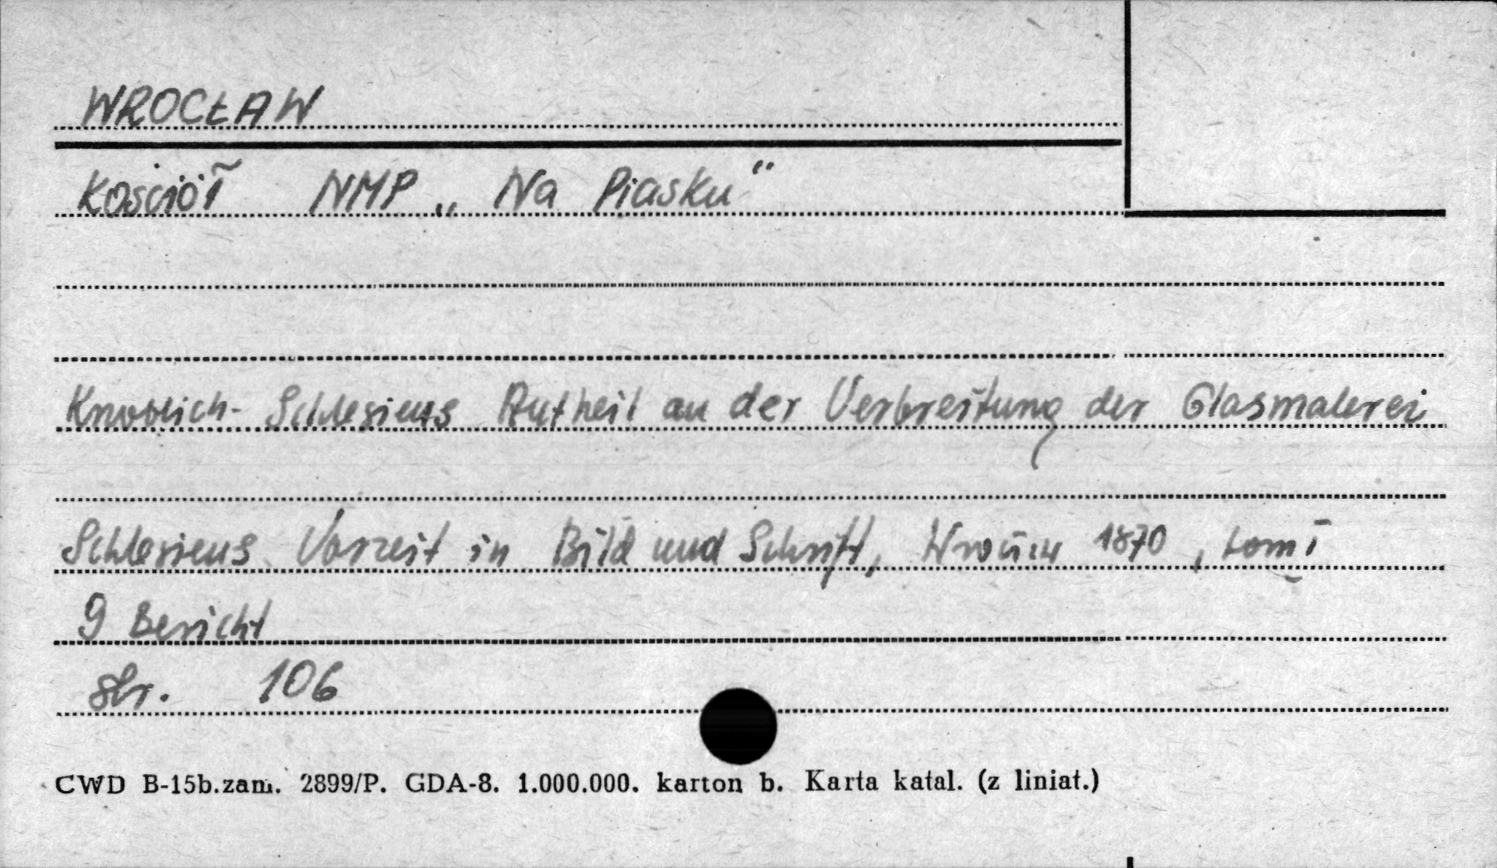 WROCŁAW
Kościół NMP „Na Piasku"
Knoblich - Schlesiens Antheil an der Verbreitung der Glasmalerei
Schlesiens Vorzeit in Bild und Schrift, Wrocław 1870, tom I
9 Bericht
str. 106
CWD B-15b.zam. 2899/P. GDA-8. 1.000.000. karton b. Karta katal. (z liniat.)